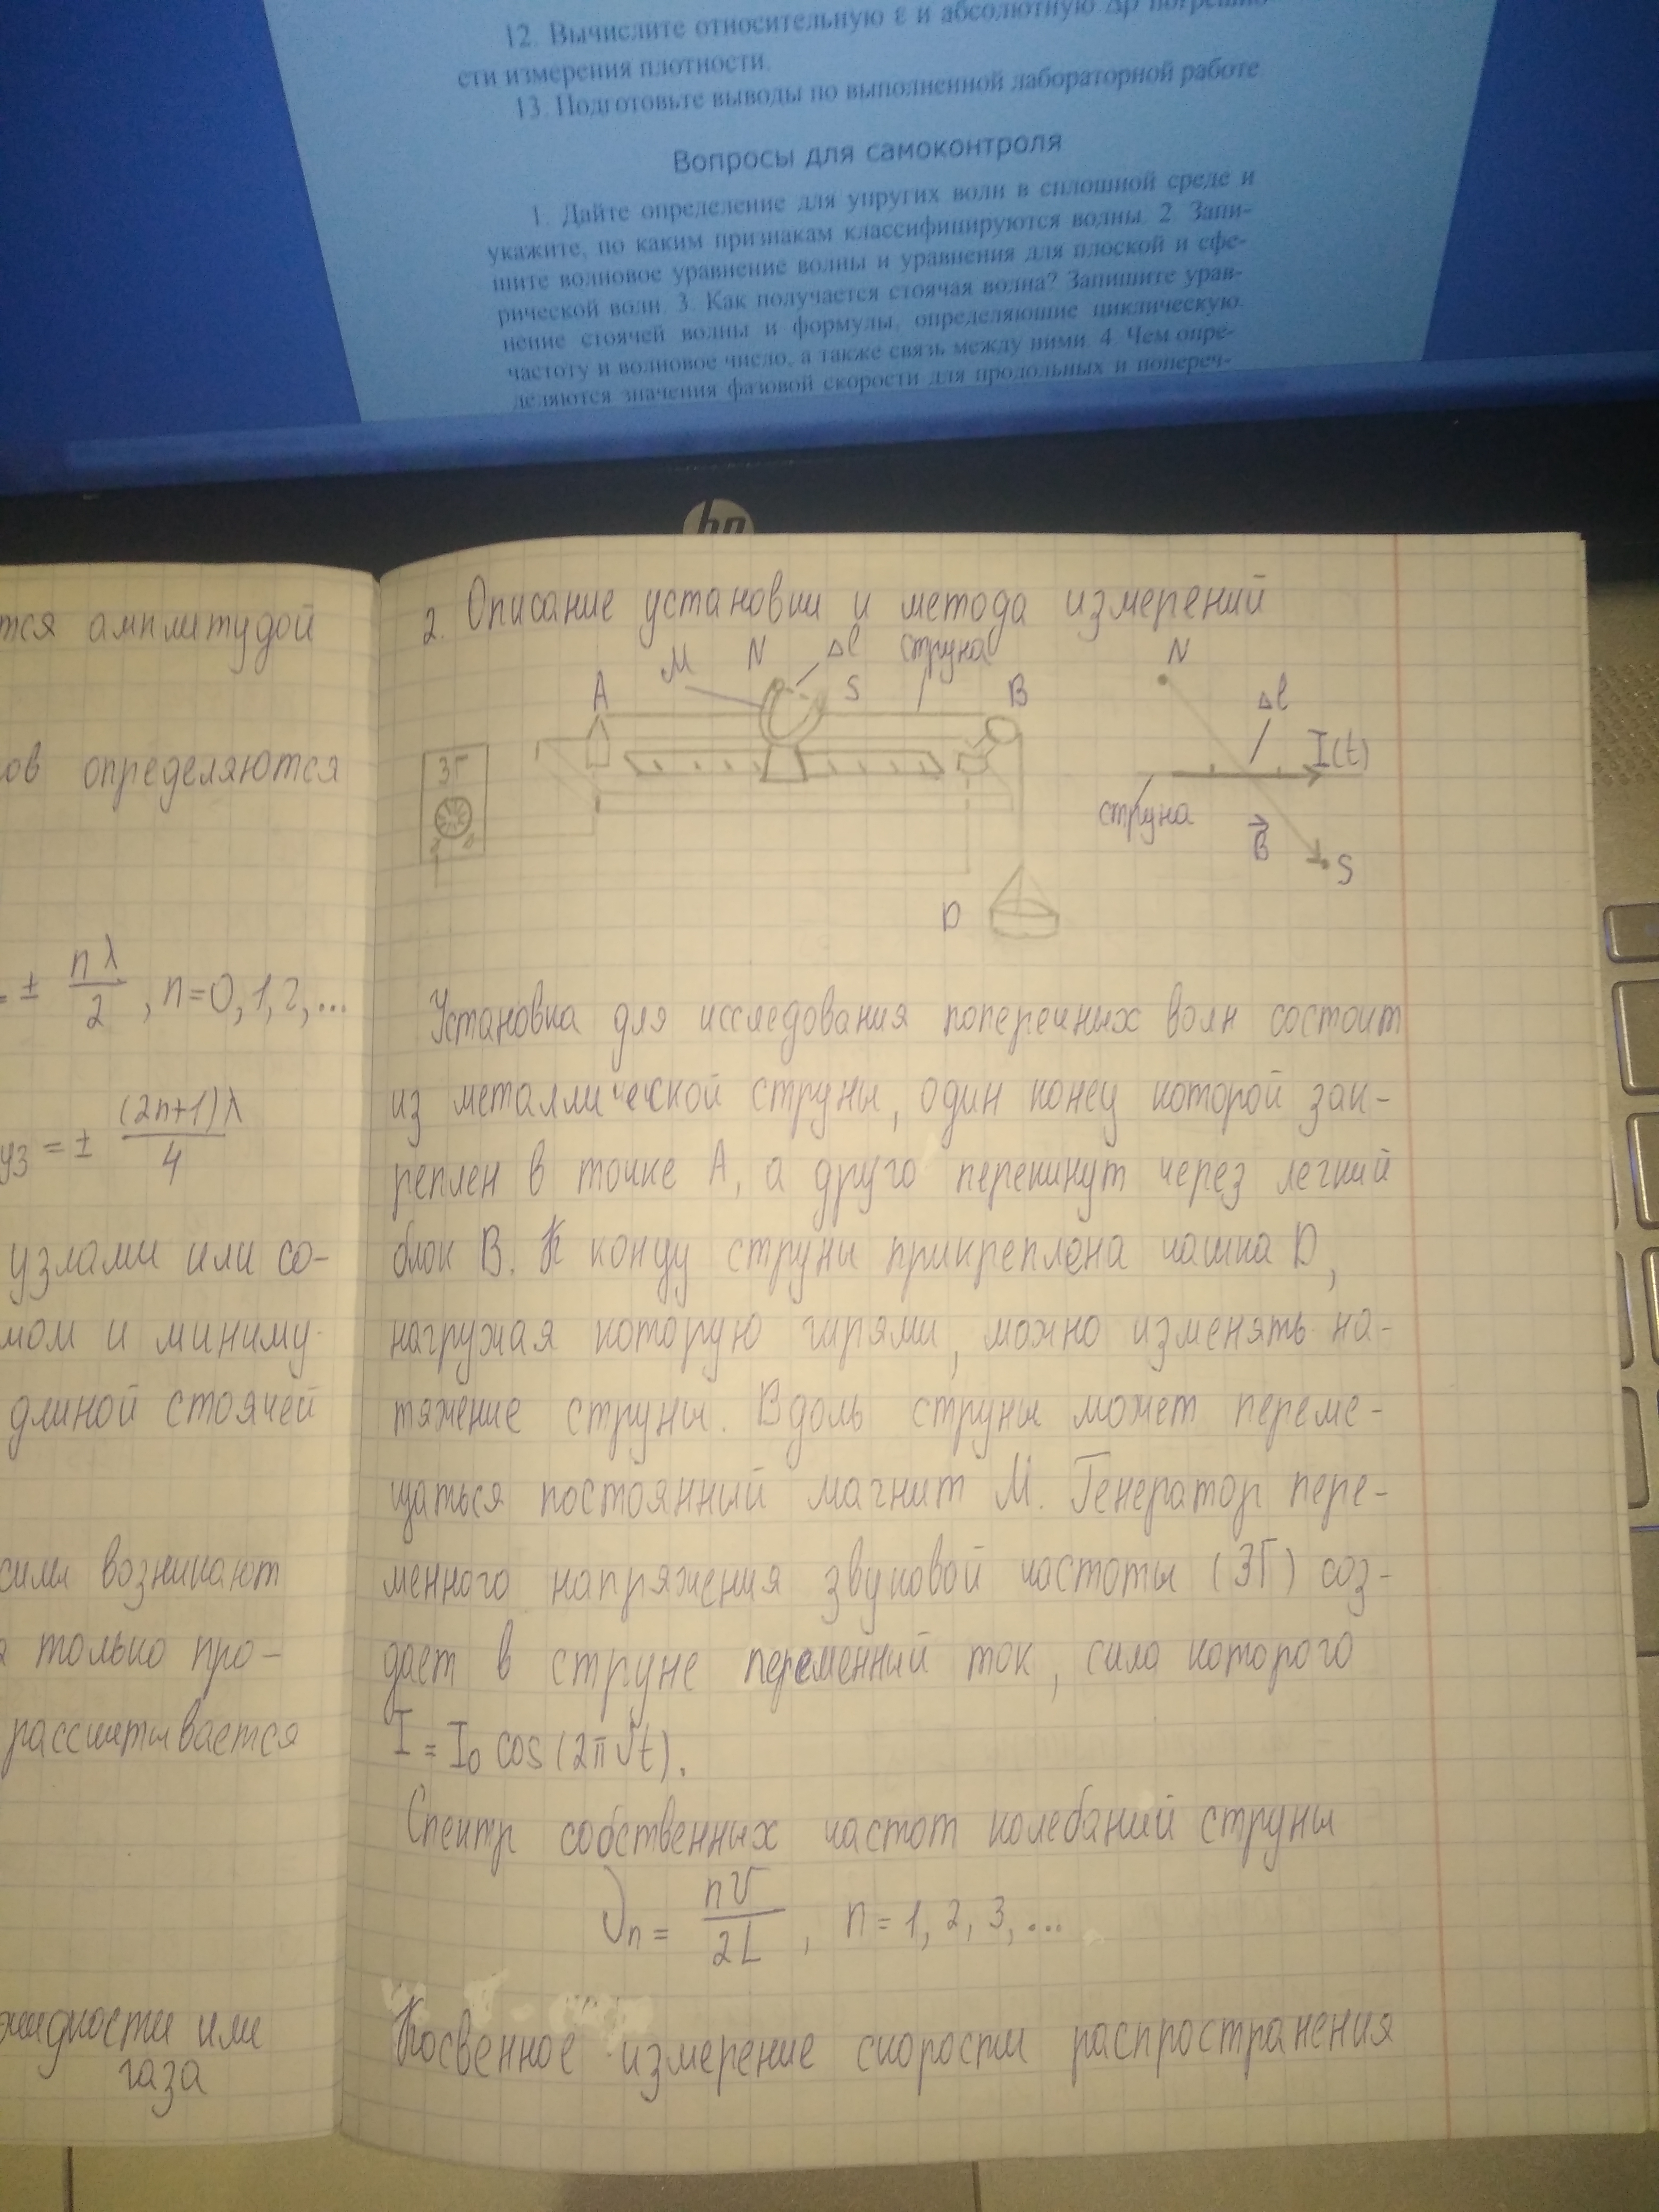 12. Вычислите относительную ε и абсолютную Δρ погрешно-
сти измерения плотности.
13. Подготовьте выводы по выполненной лабораторной работе.
Вопросы для самоконтроля
1. Дайте определение для упругих волн в сплошной среде и
укажите, по каким признакам классифицируются волны. 2. Запи-
шите волновое уравнение волны и уравнения для плоской и сфе-
рической волн. 3. Как получается стоячая волна? Запишите урав-
нение стоячей волны и формулы, определяющие циклическую
частоту и волновое число, а также связь между ними. 4. Чем опре-
деляются значения фазовой скорости для продольных и попереч-
hp
тся амплитудой
ов определяются
= ± nλ/2, n=0, 1, 2, ...
уз = ± (2n+1)λ/4
узлами или со-
мом и миниму-
длиной стоячей
силы возникают
только про-
рассчитывается
жидкости или
газа
2. Описание установки и метода измерений
A M N Δl S струна B
ЗГ
D
N Δl I(t)
струна B⃗ S
Установка для исследования поперечных волн состоит
из металлической струны, один конец которой зак-
реплен в точке А, а друго перекинут через легкий
блок В. К концу струны прикреплена чашка D,
нагружая которую гирями, можно изменять на-
тяжение струны. Вдоль струны может переме-
щаться постоянный магнит М. Генератор пере-
менного напряжения звуковой частоты (ЗГ) соз-
дает в струне переменный ток, сила которого
I = I₀ cos(2πνt).
Спектр собственных частот колебаний струны
νn = nv/2L, n = 1, 2, 3, ...
Косвенное измерение скорости распространения